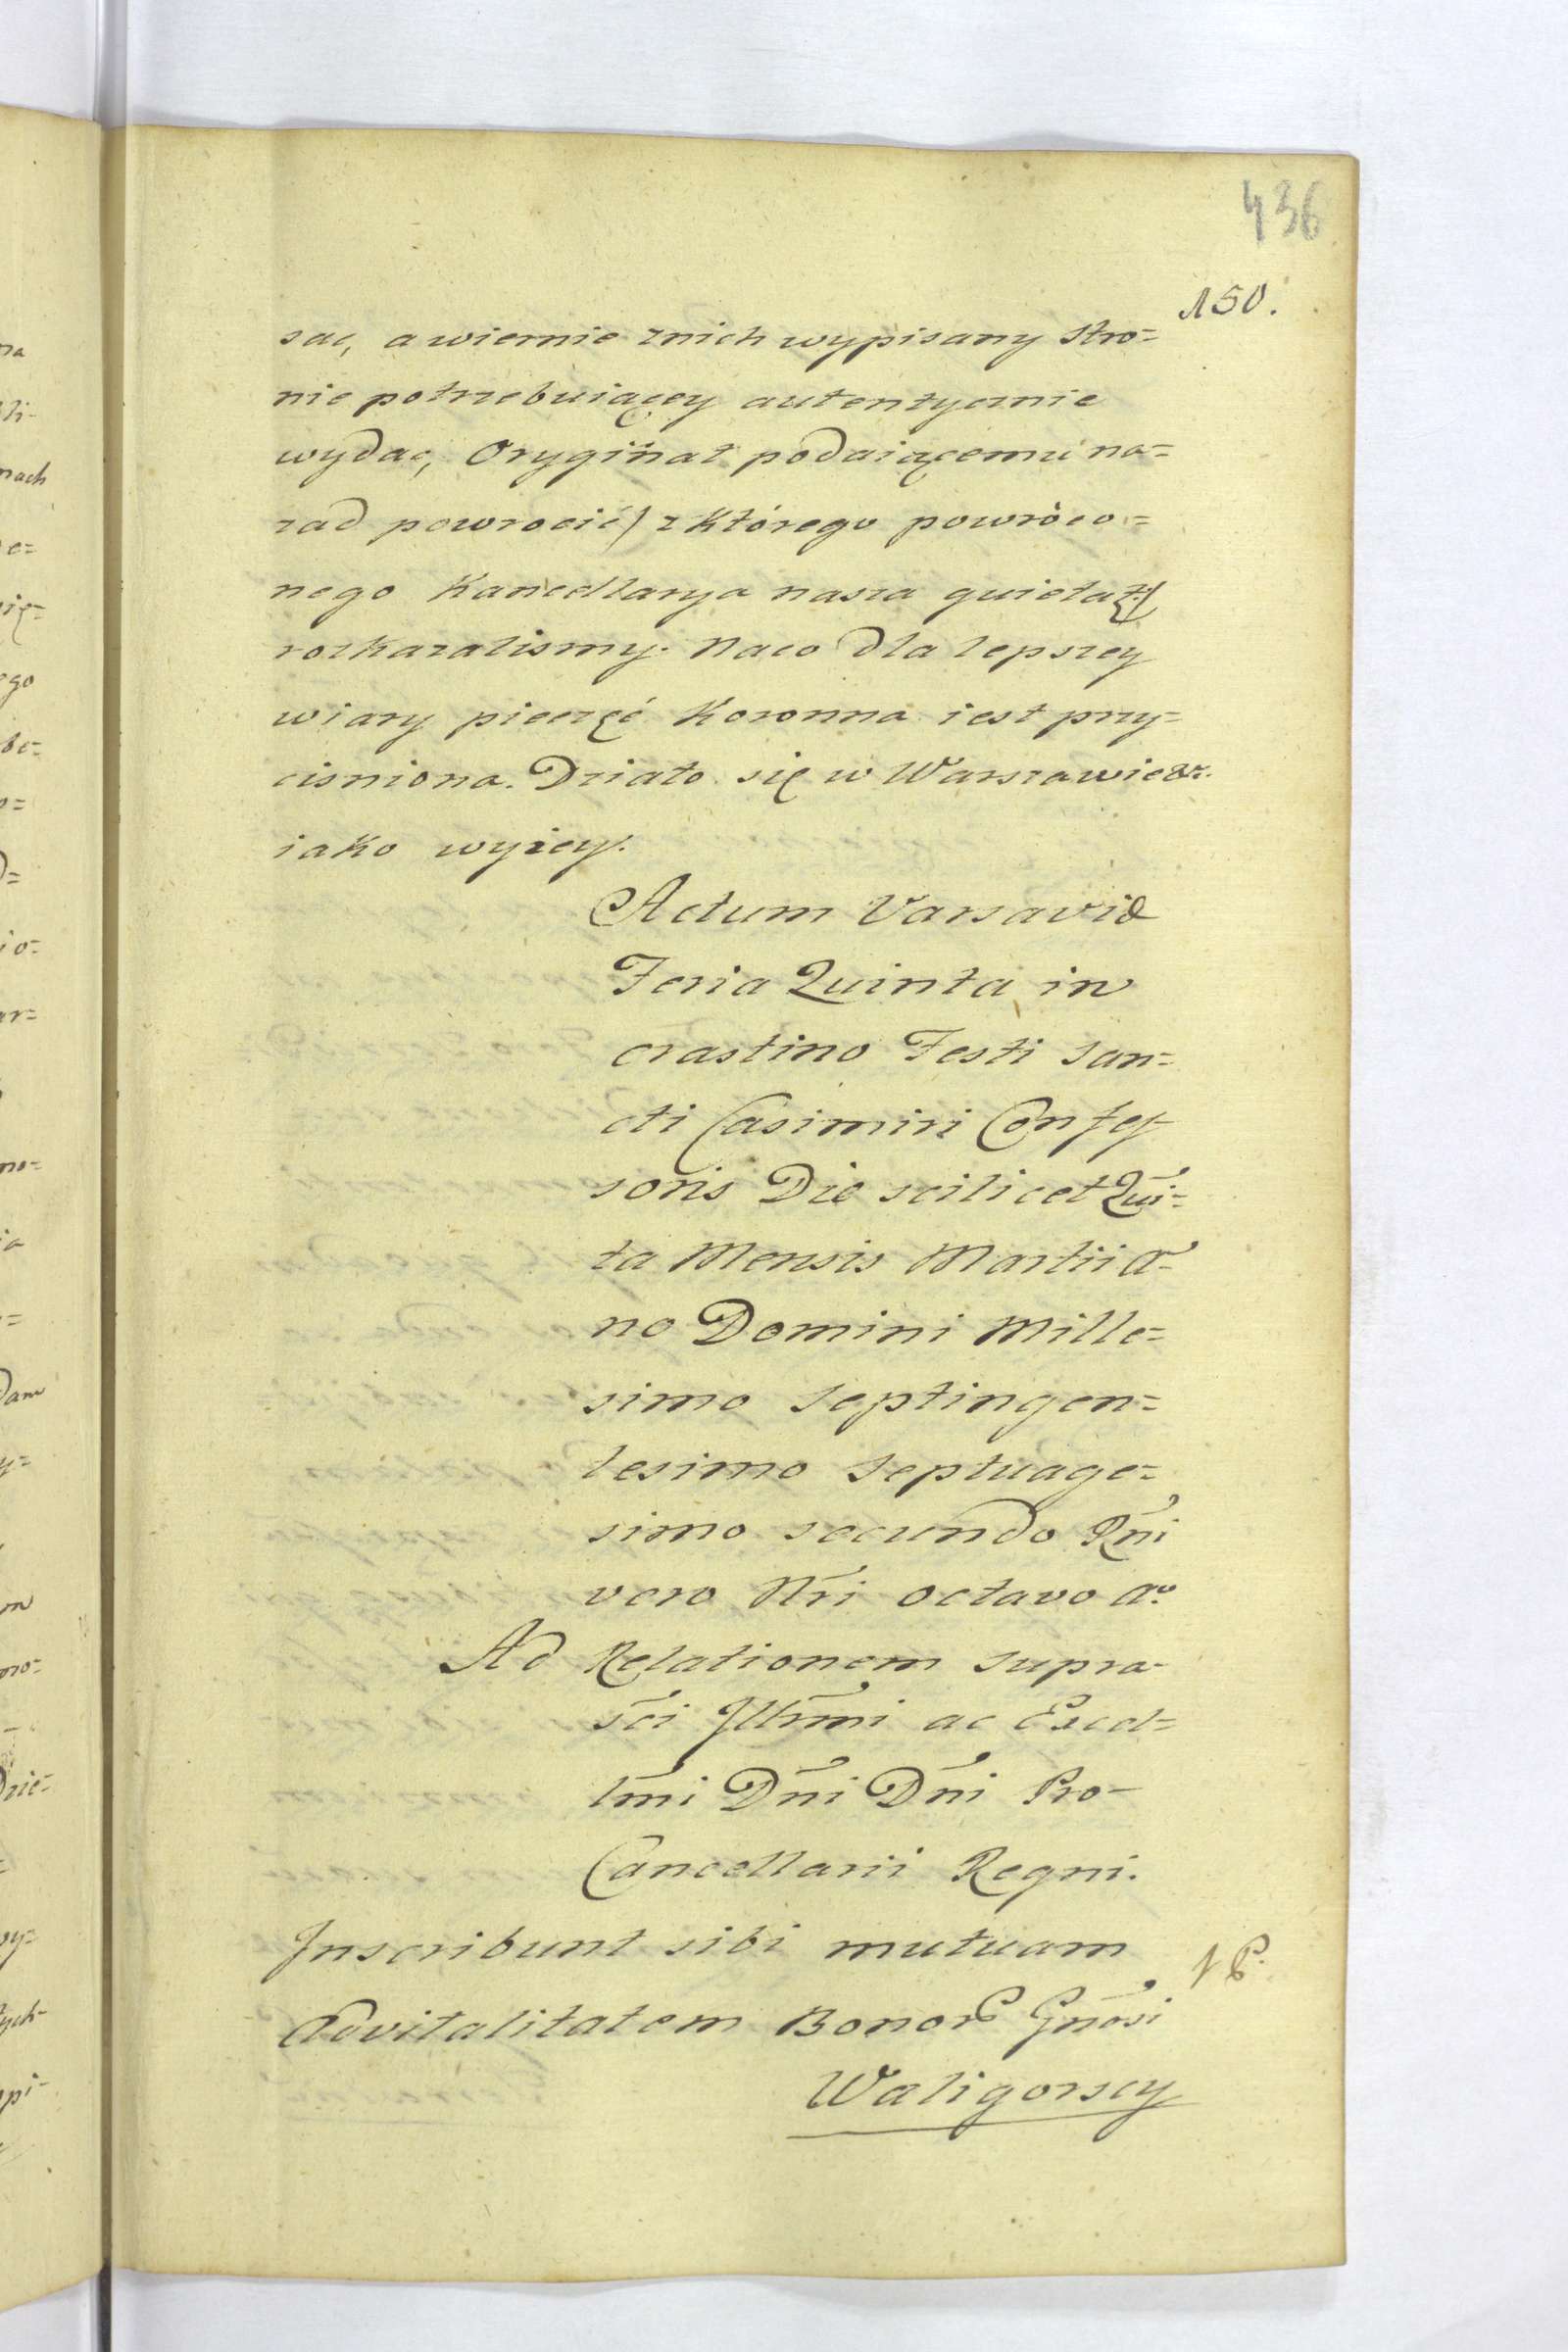 436
150.
sac, a wiernie znich wypisany Stro=
nie potrzebuiącey autentycznie
wydac, Oryginał podaiącemu na=
zad powrocić) z którego powróco=
nego Kancellarya nasza quietat:)
rozkazalismy. Naco dla lepszey
wiary pieczęć Koronna iest przy=
cisniona. Działo się w Warszawie &c.
iako wyżey.
Actum Varsaviæ
Feria Quinta in
crastino Festi San=
cti Casimiri Confes
soris Die scilicet Qui=
ta Mensis Martii A=
no Domini Mille=
simo Septingen=
tesimo Septuage=
simo secundo Rñi
vero Nři octavo Aº
Ad Relationem supra-
sci Illrmi ac Excel=
lmi Dñi Dñi Pro-
Cancellarii Regni.
Inscribunt sibi mutuam
Advitalitatem Bonor Gnosi
Waligorscy